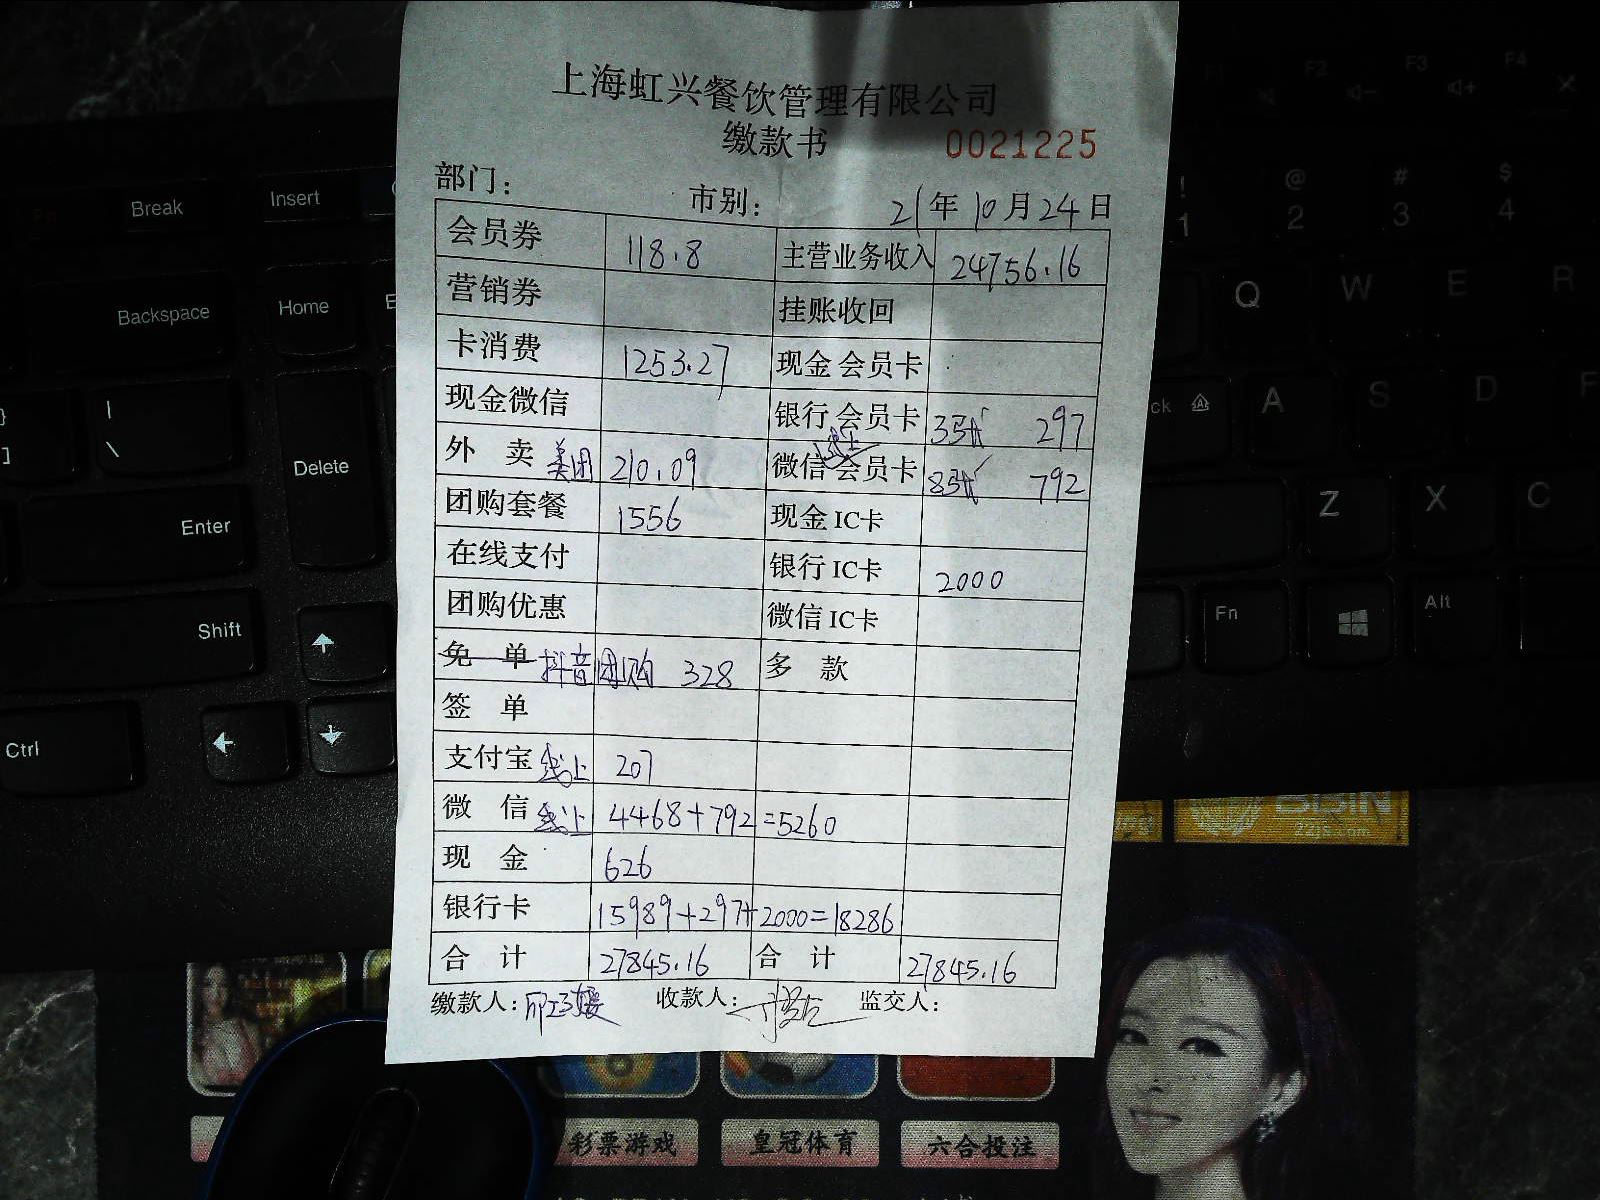 上海虹兴餐饮管理有限公司
缴款书 0021225
部门： 市别： 21年10月24日
会员券 118.8 主营业务收入 24756.16
营销券 挂账收回
卡消费 1253.27 现金 会员卡
现金微信 银行 会员卡 3张 297
外 卖 美团 210.09 微信 线上 会员卡 8张 792
团购套餐 1556 现金 IC卡
在线支付 银行 IC卡 2000
团购优惠 微信 IC卡
免 单 抖音团购 328 多 款
签 单
支付宝 线上 207
微 信 线上 4468+792=5260
现 金 626
银行卡 15989+297+2000=18286
合 计 27845.16 合 计 27845.16
缴款人： 收款人： 监交人：
Break
Insert
Backspace
Home
Delete
Enter
Shift
Ctrl
F2
F3
F4
! 1
@ 2
# 3
$ 4
Q W E R
ck A S D F
Z X C
Fn
Alt
22js.com
彩票游戏 皇冠体育 六合投注